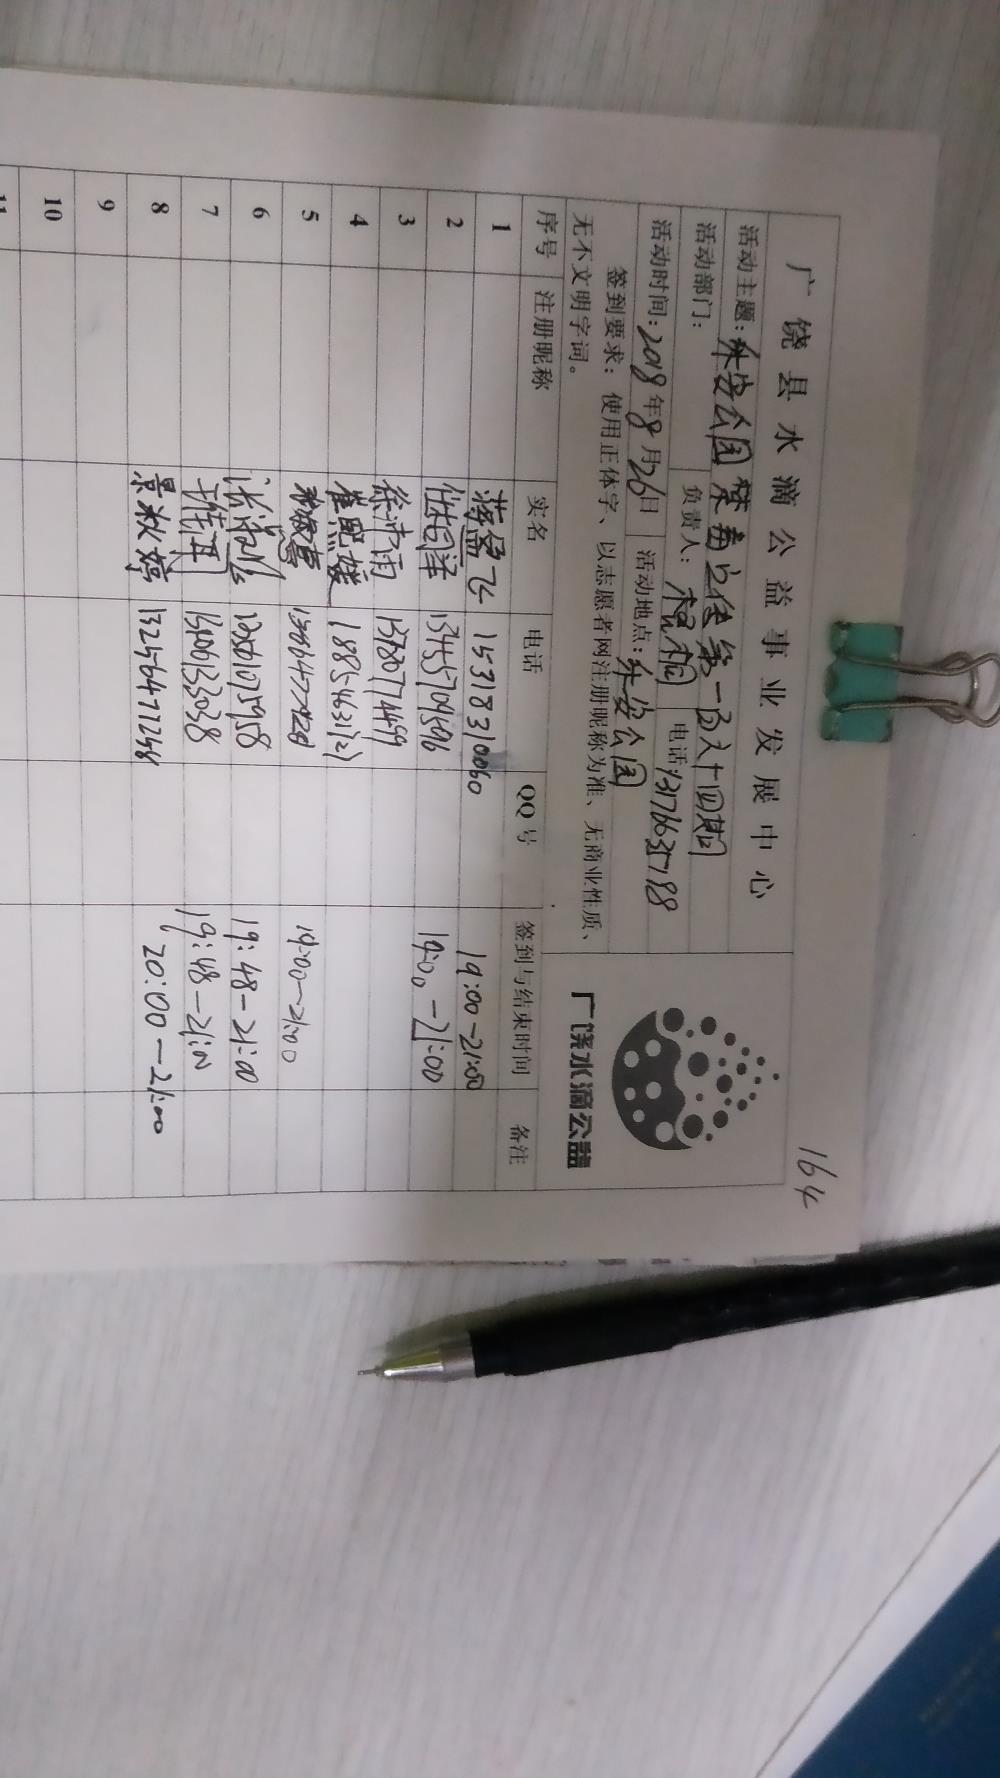 164
广饶县水滴公益事业发展中心
活动主题：乐安公园禁毒宣传第一百六十四期
活动部门： 负责人：桓桐 电话：13176635788
活动时间：2018年8月26日 活动地点：乐安公园
签到要求：使用正体字、以志愿者网注册昵称为准、无商业性质、
无不文明字词。
广饶水滴公益
序号 注册昵称 实名 电话 QQ号 签到与结束时间 备注
1 蒋盈飞 15318310060 19:00-21:00
2 19:00-21:00
3 徐沛雨
4 崔熙媛
5 19:00-21:00
6 19:48-21:00
7 19:48-21:00
8 景秋婷 20:00-21:00
9
10
11